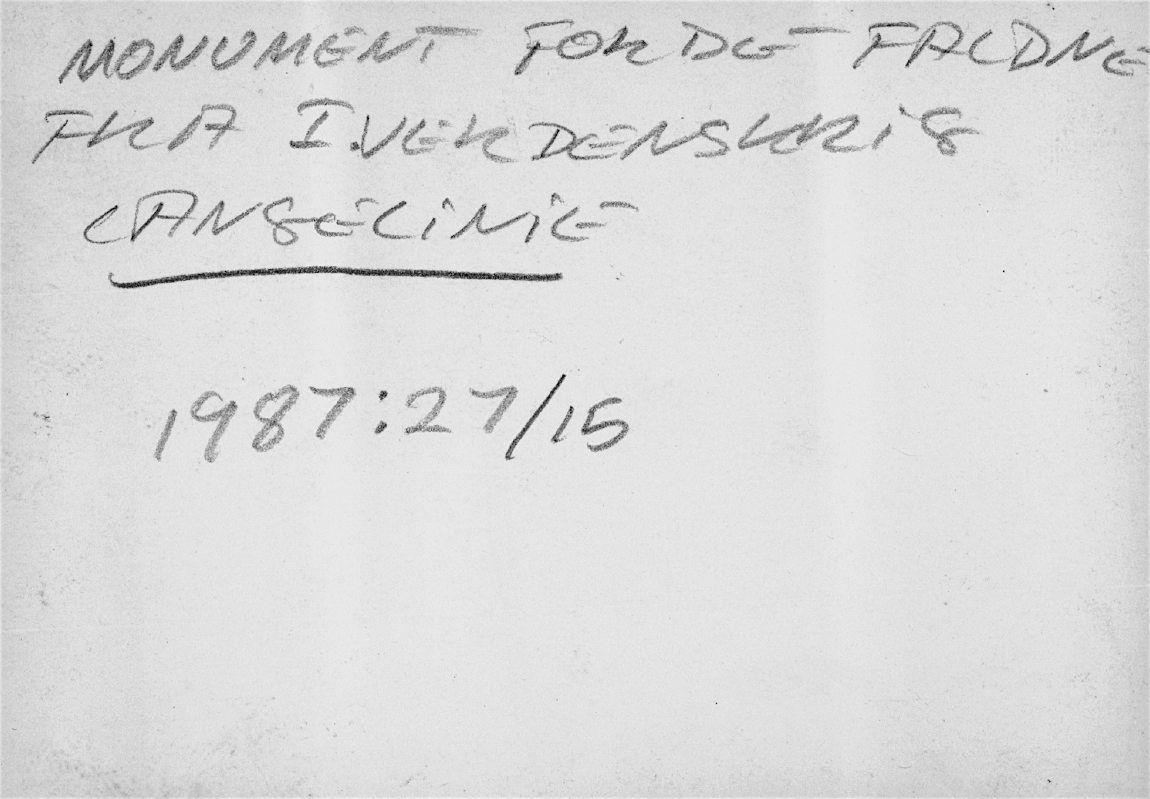 MONUMENT FOR DE FALDNE
FRA I. VERDENSKRIG
LANGELINIE
1987:27/15